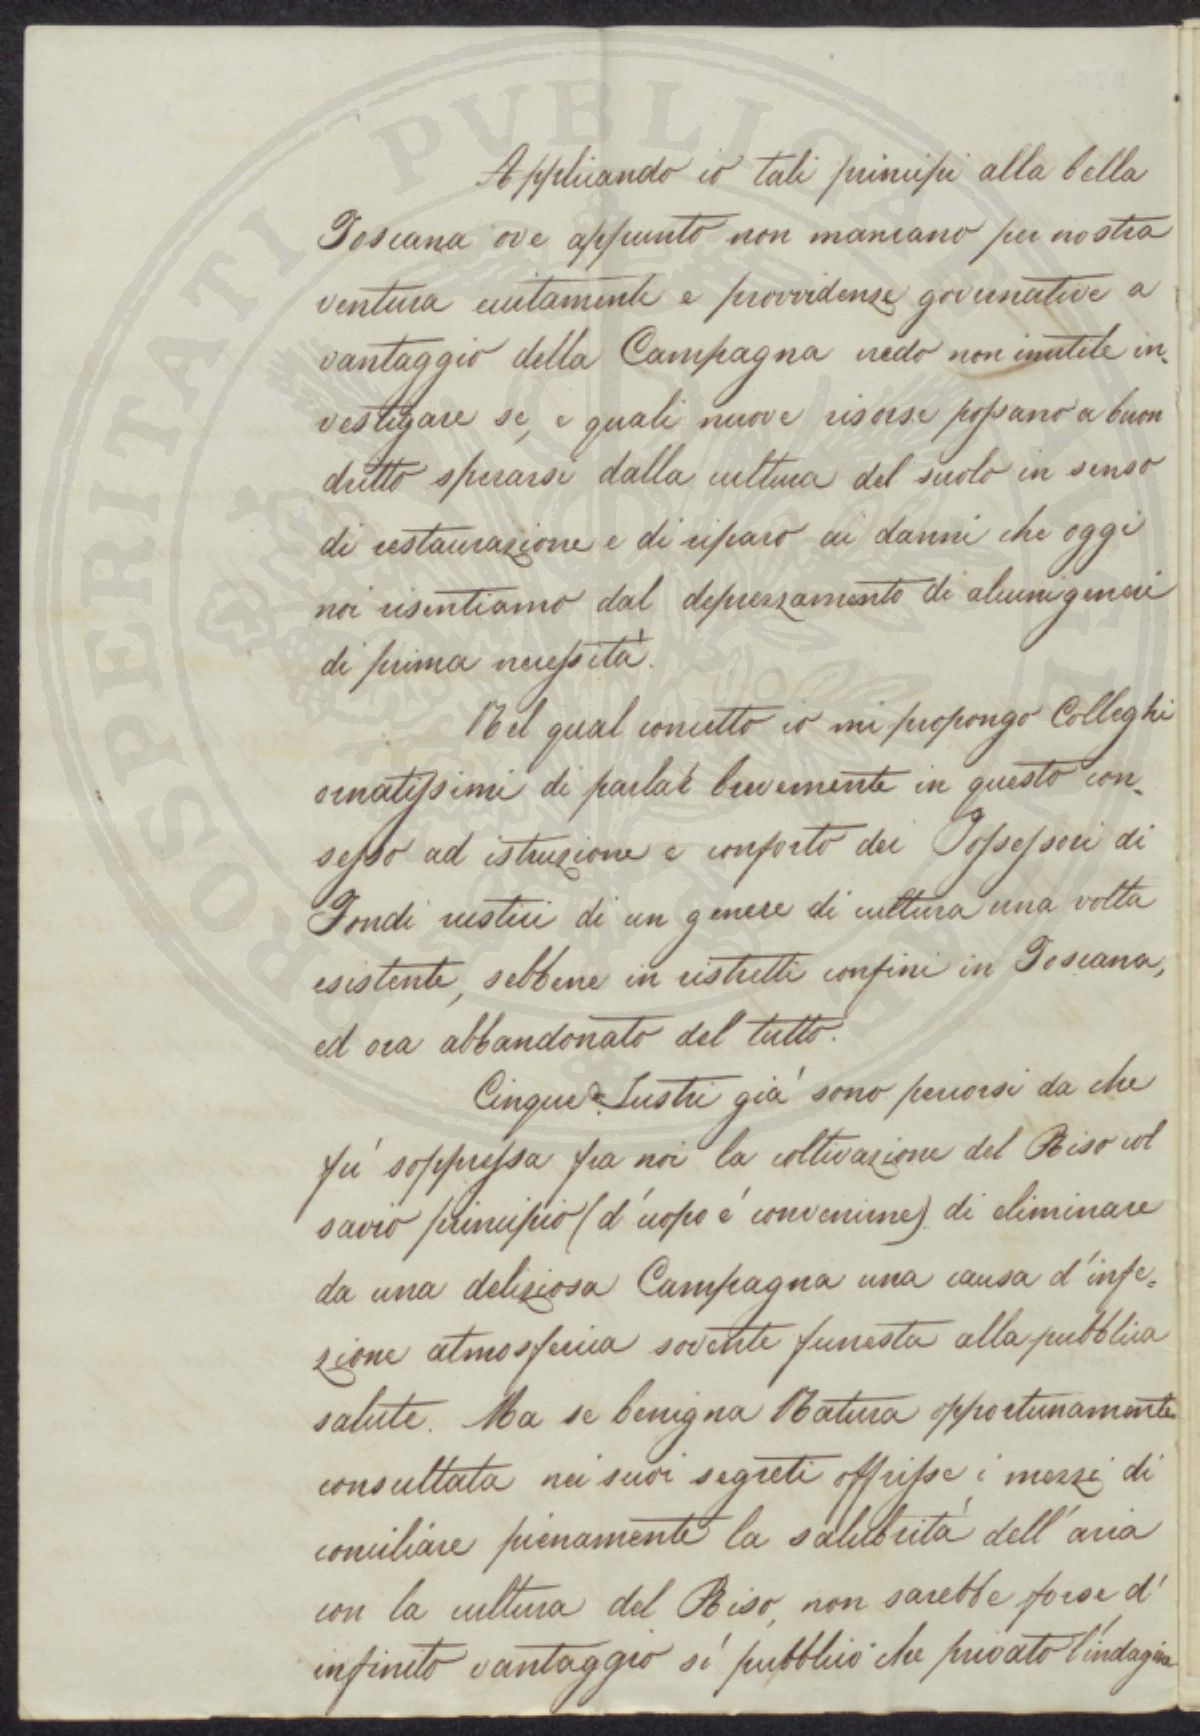 Applicando io tali principi alla bella
Toscana ove appunto non mancano per nostra
ventura eccitamenti e provvidenze governative a
vantaggio della Campagna credo non inutile in=
vestigare se, e quali nuove risorse possano a buon
dritto sperarsi dalla cultura del suolo in senso
di restaurazione e di riparo ai danni che oggi
noi risentiamo dal deprezzamento di alcuni generi
di prima necessità.
Nel qual concetto io mi propongo Colleghi
ornatissimi di parlar brevemente in questo con=
sesso ad istruzione e conforto dei Possessori di
Fondi rustici di un genere di cultura una volta
esistente, sebbene in ristretti confini in Toscana,
ed ora abbandonato del tutto.
Cinque Lustri già sono percorsi da che
fù soppressa fra noi la coltivazione del Riso col
savio principio (d'uopo è convenirne) di eliminare
da una deliziosa Campagna una causa d'infe=
zione atmosferica sovente funesta alla pubblica
salute. Ma se benigna Natura opportunamente
consultata nei suoi segreti offrisse i mezzi di
conciliare pienamente la salubrità dell'aria
con la cultura del Riso, non sarebbe forse d'
infinito vantaggio sì pubblico che privato l'indagine
PROSPERITATI PUBLICAE AUGENDAE